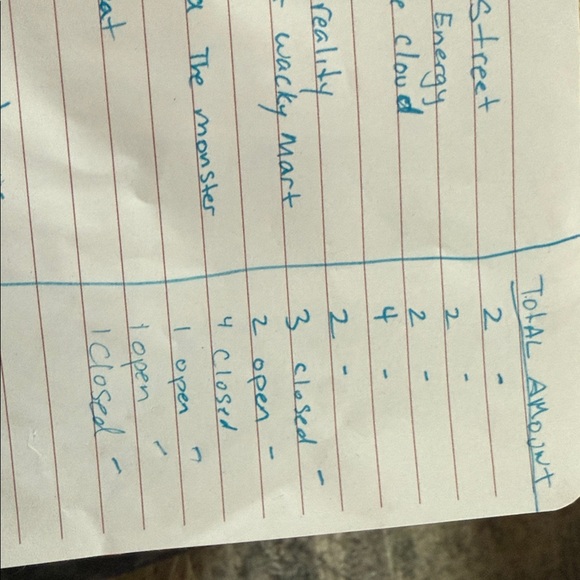 TOTAL AMOUNT
Street 2 -
Energy 2 -
cloud 2 -
4 -
reality 2 -
wacky Mart 3 closed -
2 open -
The monster 4 closed
1 open -
1 open -
at 1 closed -